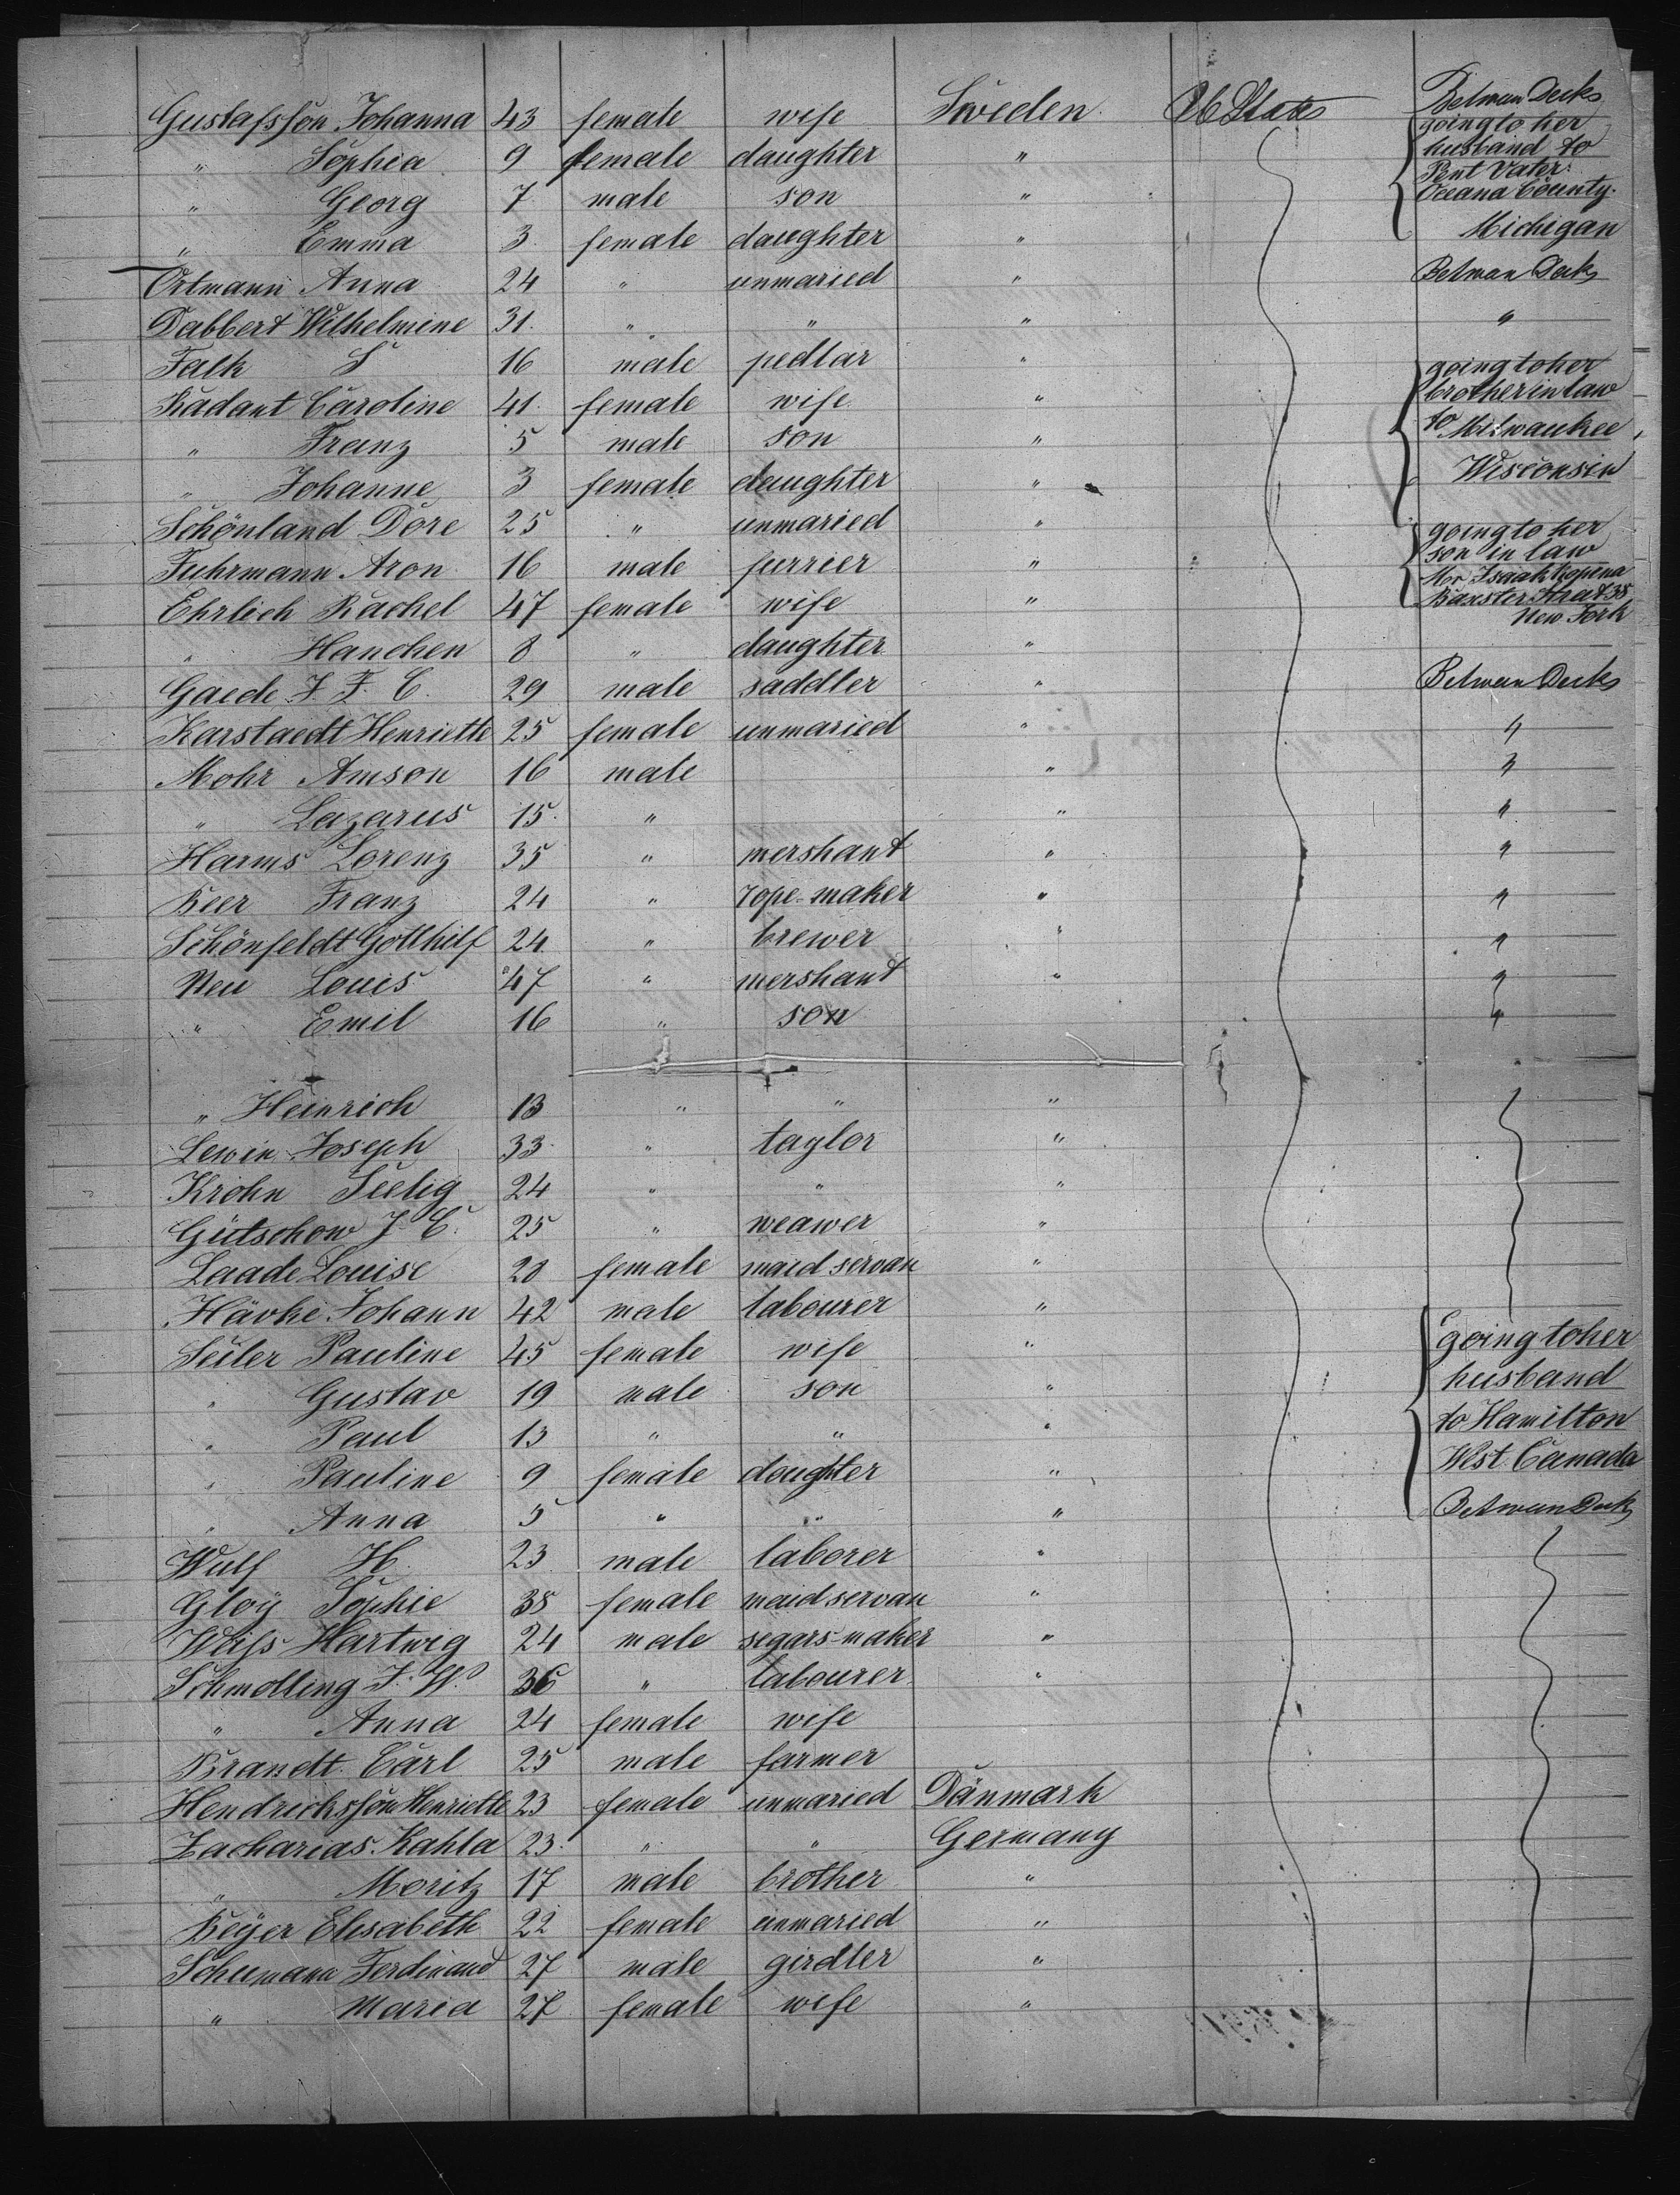 Gustafsson Johanna 43 female wife Sweden U States Betwean Decks
" Sophia 9 female daughter " going to her husband to
" Georg 7 male son " Pent Vater Oceana County
" Emma 3 female daughter " Michigan
Ortmann Anna 24 " unmaried " Betwean Decks
Dabbert Wilhelmine 31 " " " "
Falk S 16 male pedlar "
Radant Caroline 41 female wife " going to her brother in law
" Franz 5 male son " to Milwaukee
" Johanne 3 female daughter " Wisconsin
Schönland Dore 25 " unmaried "
Fuhrmann Aron 16 male furrier " going to her son in law
Ehrlich Rachel 47 female wife " Mr Isaak Baxster Street 38 New York
" Hanchen 8 " daughter "
Gaede J. F. C. 29 male saddler " Betwean Decks
Karstaedt Henriette 25 female unmaried " "
Mohr Amson 16 male " "
" Lazarus 15 " " "
Harms Lorenz 35 " mershant " "
Beer Franz 24 " rope-maker " "
Schönfeldt Gotthilf 24 " brewer " "
Neu Louis 47 " mershant " "
" Emil 16 " son "
" Heinrich 13 " " "
Lewin Joseph 33 " taylor "
Krohn Seelig 24 " " "
Gütschow J C. 25 " weawer "
Laade Louise 28 female maid servan "
Hävke Johann 42 male labourer "
Seiler Pauline 45 female wife " going to her
" Gustav 19 male son " husband
" Paul 13 " " " to Hamilton
" Pauline 9 female doughter " West Canada
" Anna 5 " " " Betwean Deck
Wulf H. 23 male laborer "
Gloÿ Sophie 38 female maid servan "
Weiss Hartwig 24 male segars-maker "
Schmolling J. W. 36 " labourer "
" Anna 24 female wife
Brandt Carl 25 male farmer
Hendrichsson Henriette 23 female unmaried Dänmark
Zacharias Kahla 23 " " Germany
" Moritz 17 male brother "
Beÿer Elisabeth 22 female unmaried "
Schumann Ferdinand 27 male girdler "
" Maria 27 female wife "